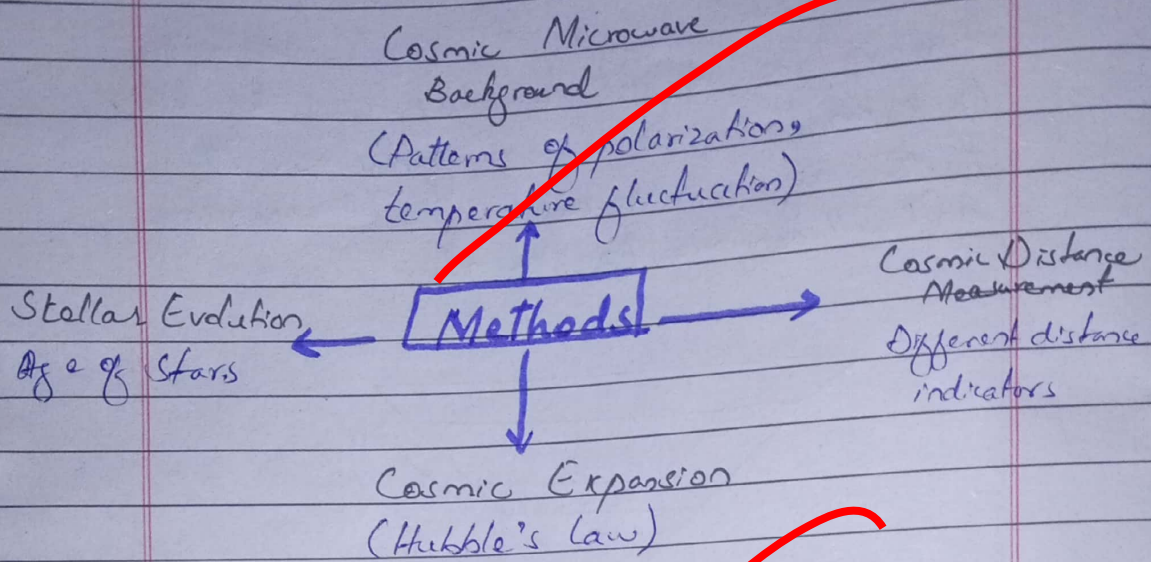 Cosmic Microwave
Background
(Patterns of polarization,
temperature fluctucation)
Stellar Evolution
Age of Stars
Methods
Cosmic Distance
Measurement
Different distance
indicators
Cosmic Expansion
(Hubble's Law)